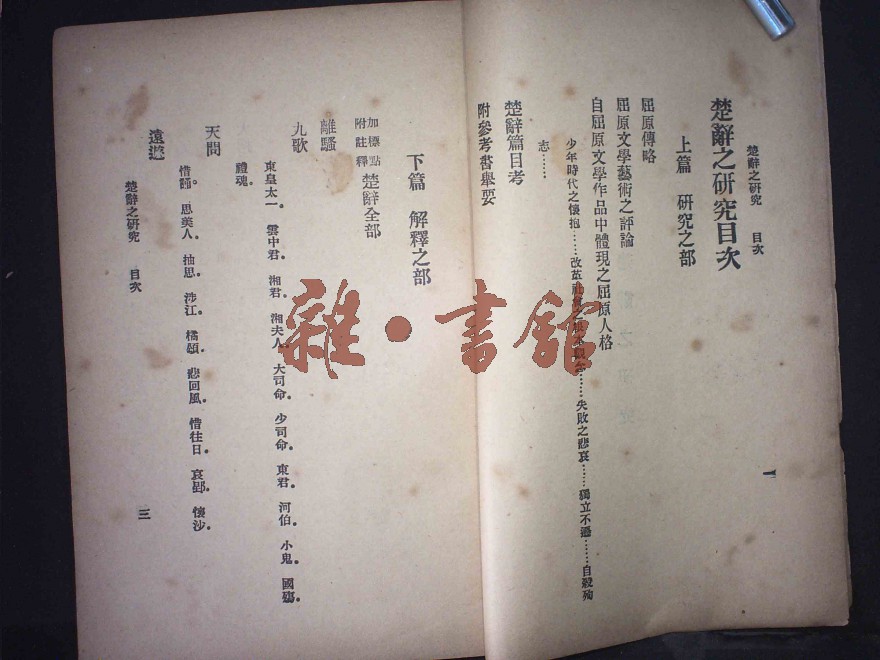 楚辭之研究 目次
楚辭之研究目次
上篇 研究之部
屈原傳略
屈原文學藝術之評論
自屈原文學作品中體現之屈原人格
少年時代之懷抱……改革社會之根本觀念……失敗之悲哀……獨立不遷……自殺殉
志……
楚辭篇目考
附參考書舉要
一
下篇 解釋之部
加標點附註釋楚辭全部
離騷
九歌
東皇太一。 雲中君。 湘君。 湘夫人。 大司命。 少司命。 東君。 河伯。 小鬼。 國殤。
禮魂。
天問
惜誦。 思美人。 抽思。 涉江。 橘頌。 悲回風。 惜往日。 哀郢。 懷沙。
遠遊
楚辭之研究 目次
三
雜·書館